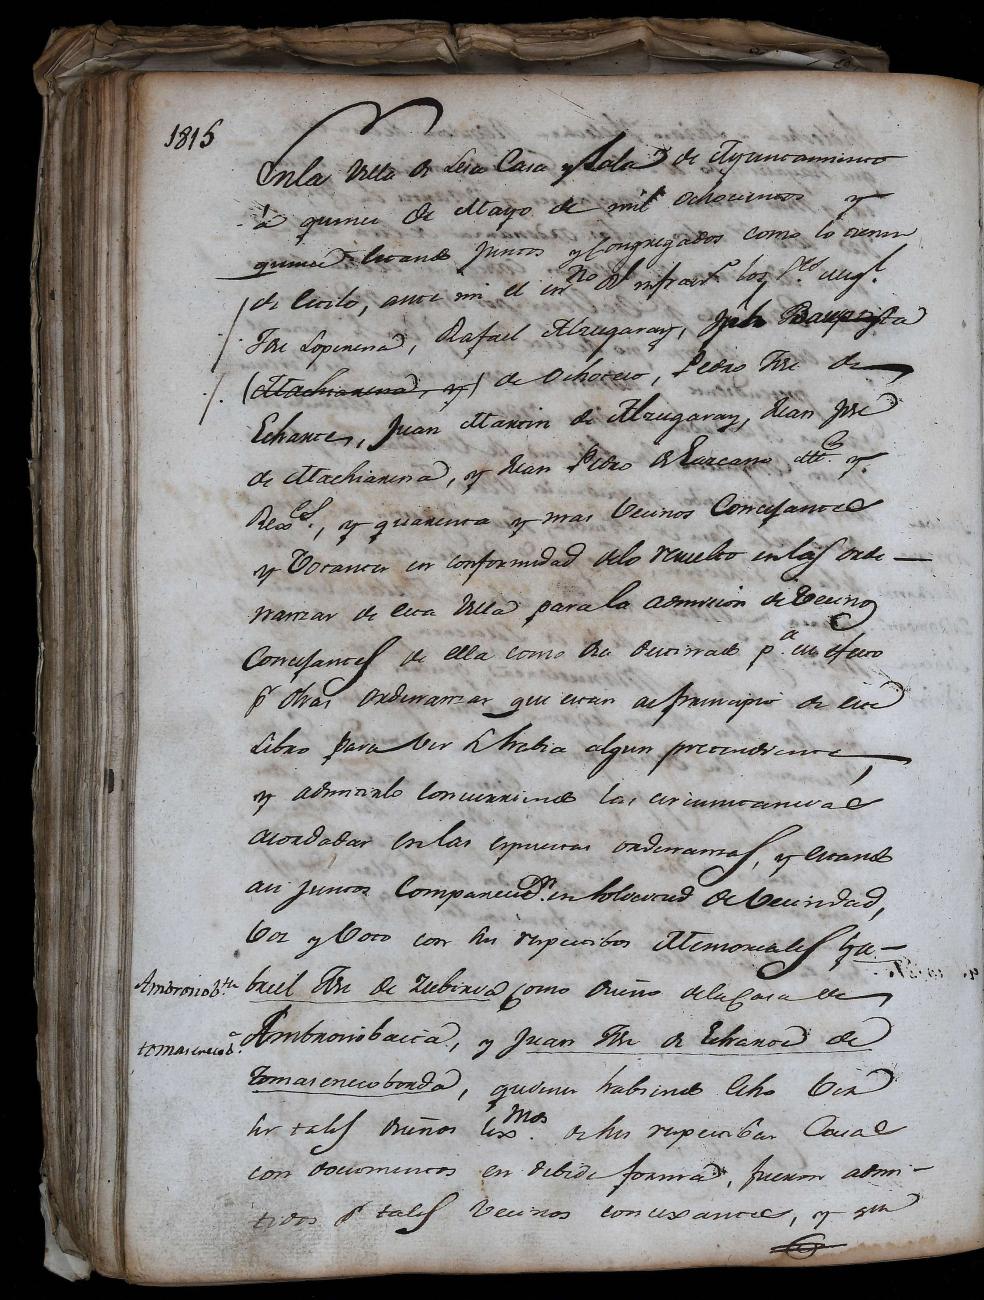 1815
En la Villa de Lesa Casa y Sala de Ayuntamiento
à quince de Mayo de mil ochocientos y
quince estando juntos y Congregados como lo tienen
de estilo, ante mi el essno Rl infraexpto los Sres Migl
Jse Loperena, Rafael Alzugaray, Jph Baupista
(Machiarena, y) de Ochoteco, Pedro Jse de
Echarte, Juan Martin de Alzugaray, Juan Jose
de Machiarena, y Juan Pedro de Lazcano Alte y
Rexes, y quarenta y mas Vecinos Concejantes
y Vocantes en conformidad delo resuelto en las orde-
nanzas de esta Villa para la admision de Vecinos
Concejantes de ella como dia destinado pa su efecto
pr dhas ordenanzas que estan al principio de este
Libro para ver si habia algun pretendiente,
y admitirlo concurriendo las circunstancias
acordadas en las expuestas ordenanzas, y estando
asi juntos Comparecieron en solicitud de Vecindad,
Voz y Voto con sus respectibos Memoriales Ga-
Ambrosiobta
briel Jse de Zubiria como dueño dela Casa de
Ambrosiobaita, y Juan Jse de Echarte de
tomasenecoba
Tomasenecoborda, quienes habiendo hecho ver
ser tales dueños lexmos de sus respectibas Casas
con documentos en debida forma, fueron admi-
tidos pr tales Vecinos concexantes, y que